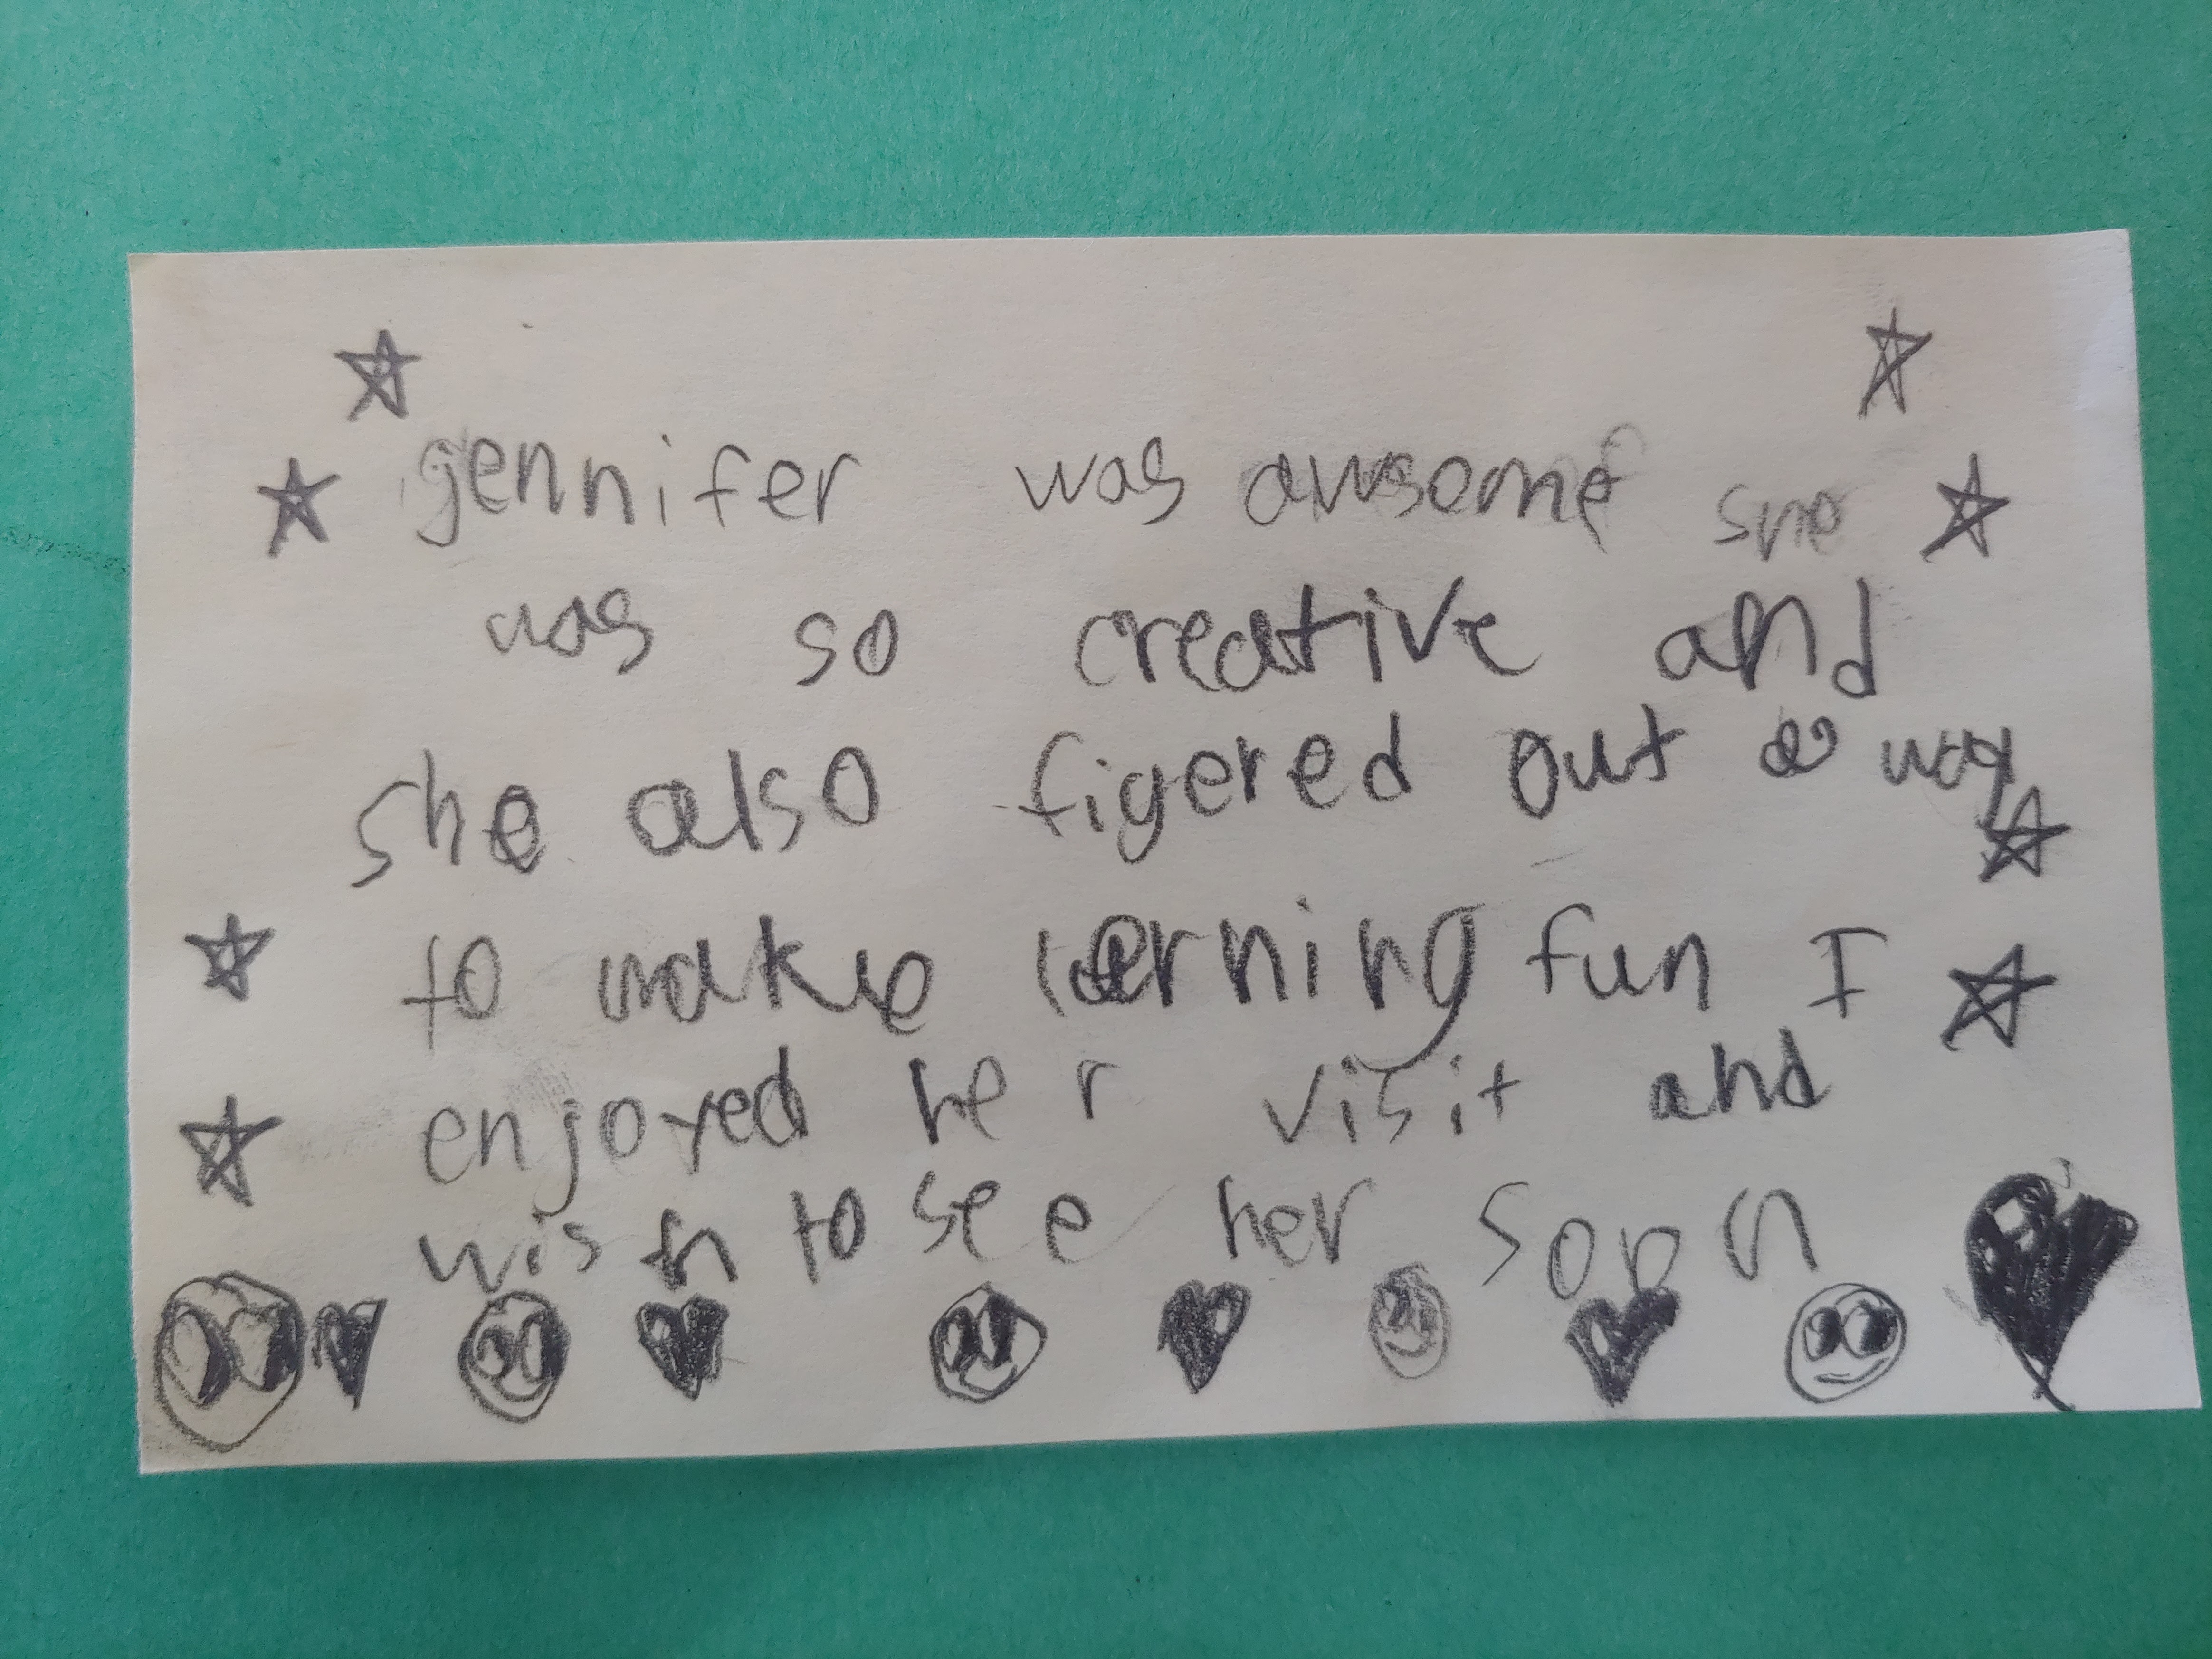 gennifer was awsome she
was so creative and
she also figered out a way
to make lerning fun I
enjoyed her visit and
wish to see her soon